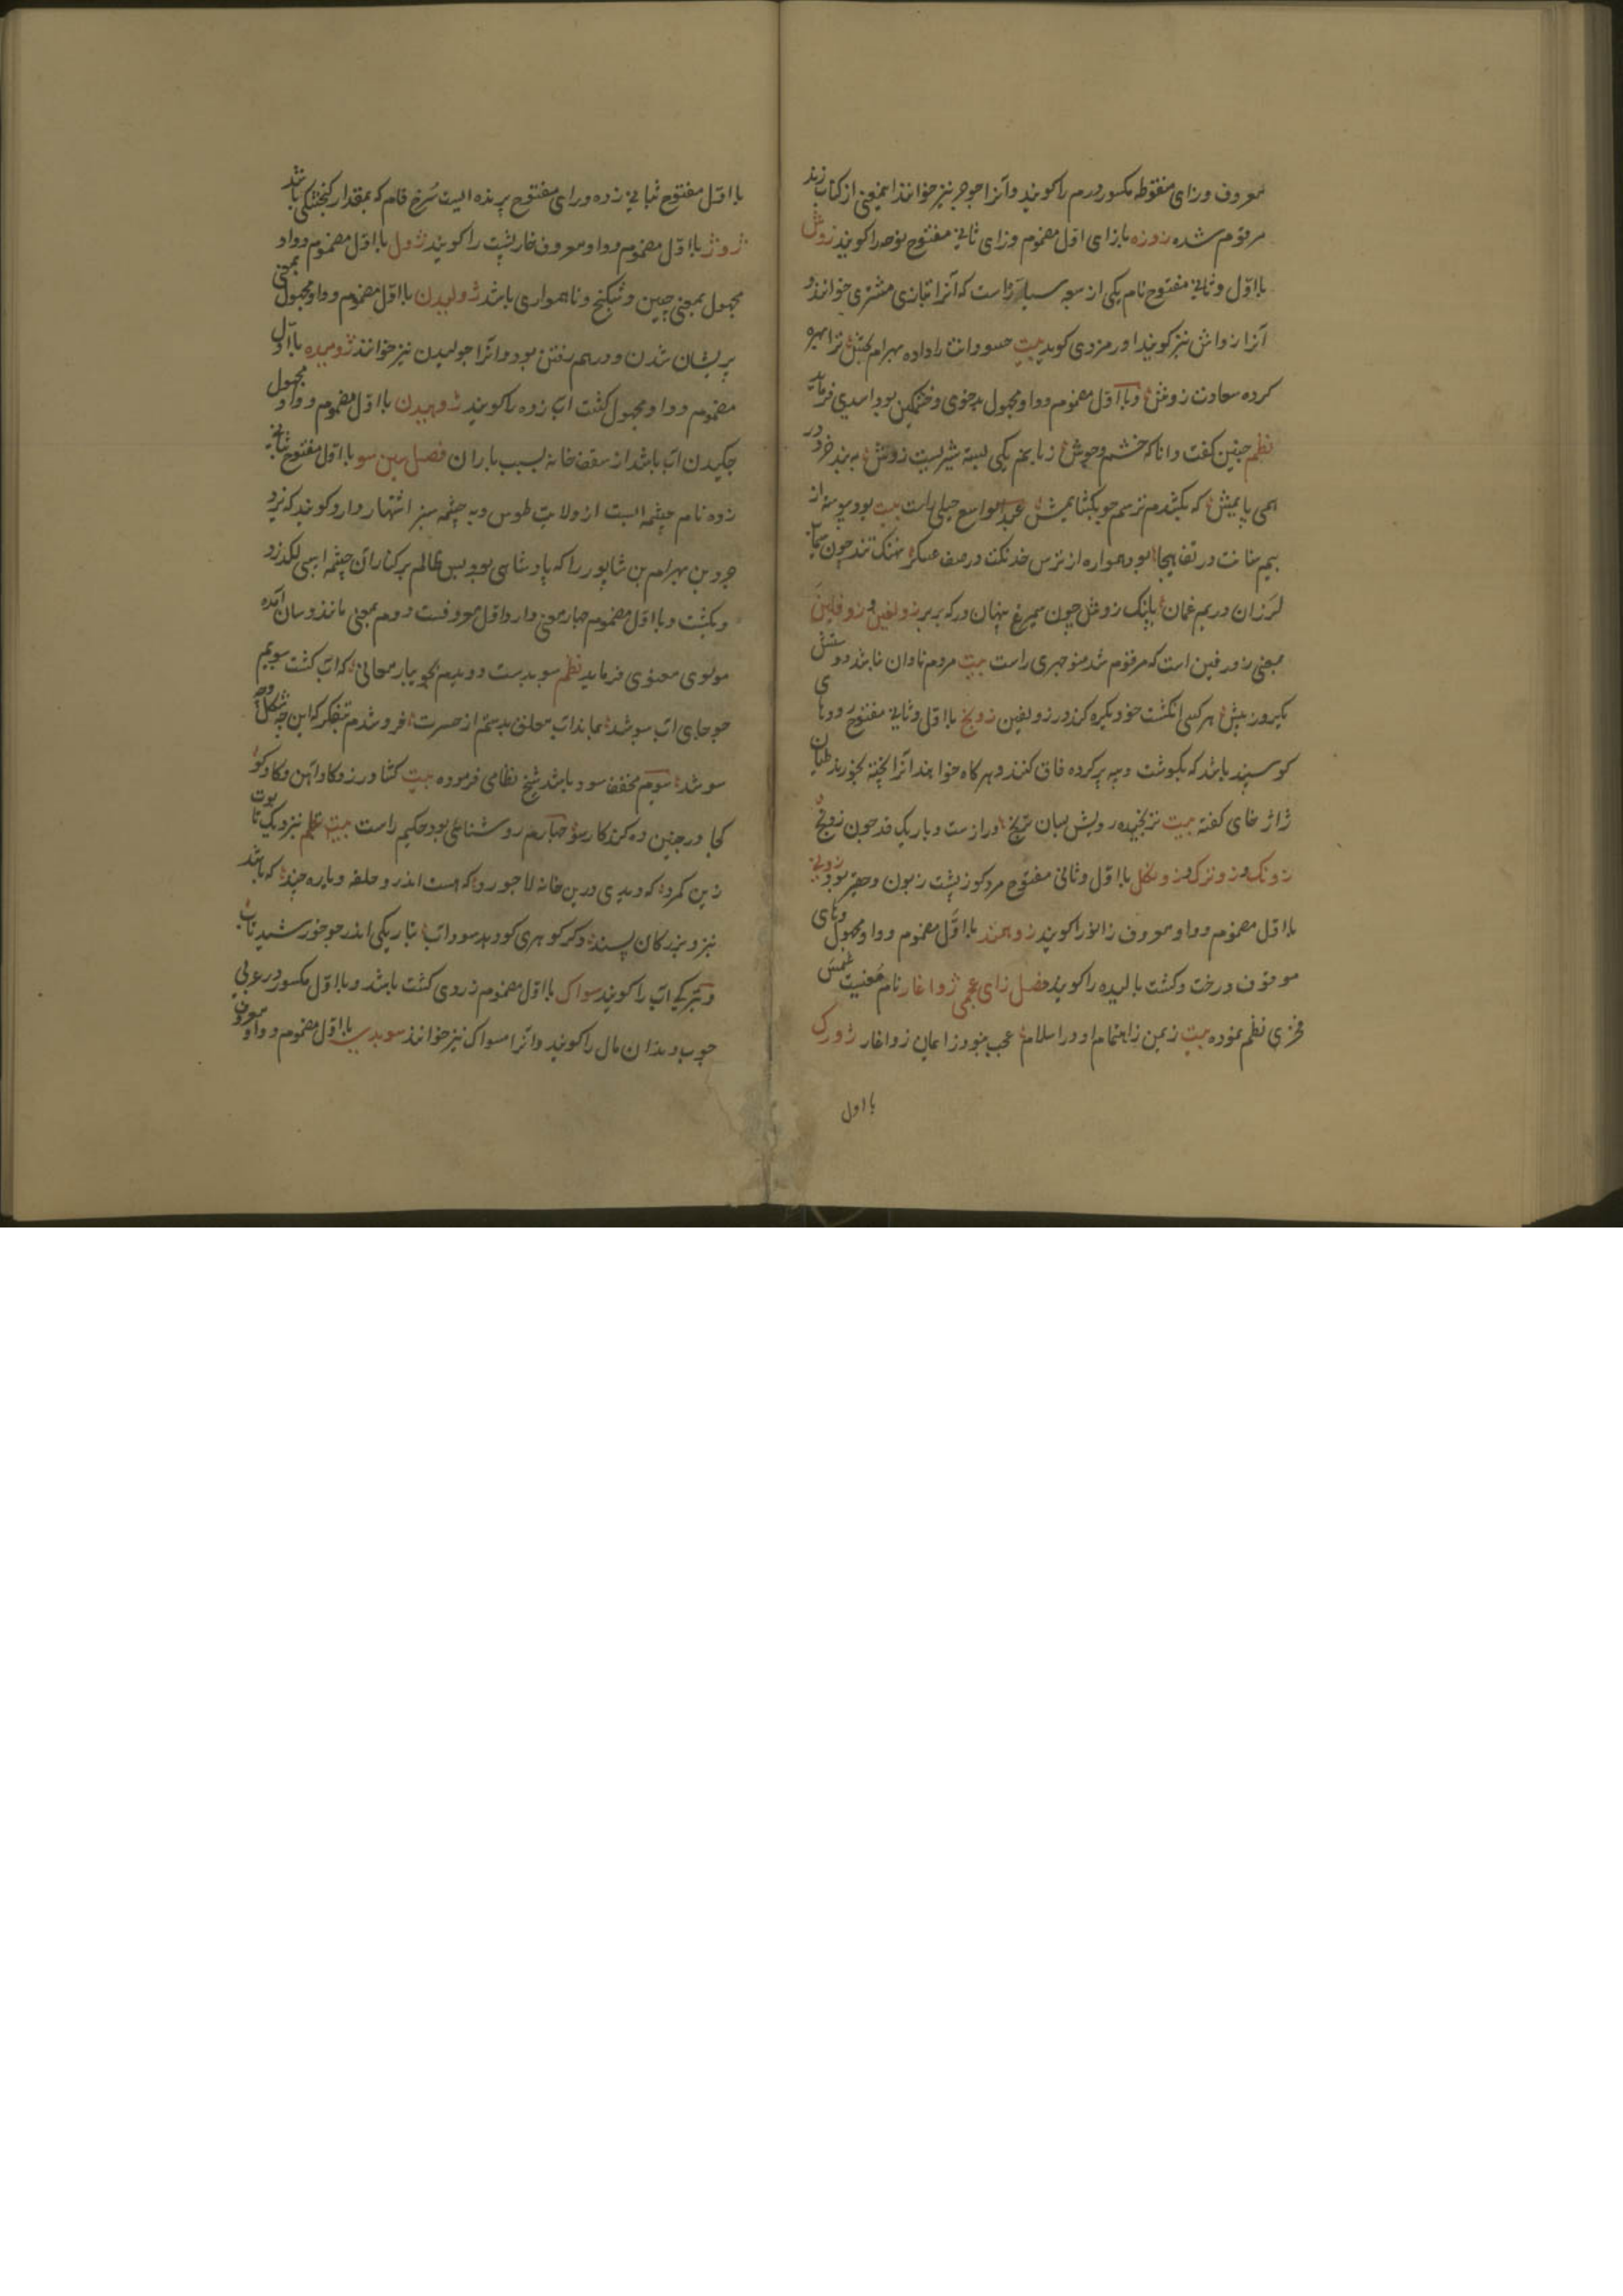 معروف و زای منقوطه مکسور درم را کویند و آنرا جوجر نیز خوانند اینمعنی از کتاب زند
مرقوم شده زوزه بازای اول مضموم و زای ثانی مفتوح نوحه را کویند زوش
با اول و ثانی مفتوح نام یکی از سبعه سیاره است که آنرا بتازی مشتری خوانند و
آنرا زواش نیز کویند اورمزدی کوید بیت حسودانت را داده بهرام نحس ترا بهره
کرده سعادت زوش و با اول مضموم و واو مجهول بدخوی و خشمکین بود اسدی فرماید
نظم چنین کفت دانا که خشم و جوش زبانم یکی بسته شیریست زوش به بند خرد در
همی پایمش که بکشدم ترسم چو بکشایمش عبدالواسع جبلی راست بیت بود پیوسته از
بیم سنانت در تف هیجا بود همواره از ترس خدنکت در صف عسکر نهنک تند چون
لرزان در یم عمان پلنک زوش چون سیمرغ پنهان در که بربر زولفین و زوفلین
بمعنی زورفین است که مرقوم شد منوچهری راست بیت مردم نادان نباشد دوستش
یکروز بیش هر کسی انکشت خود یکره کند در زولفین زویخ با اول و ثانی مفتوح رودهای
کوسپند باشد که بکوشت و پیه پر کرده قاق کنند و هر کاه خواهند آنرا پخته بخورند طیان
ژاژ خای کفته بیت ترنجیده رویش بسان ترنج دراز ست و باریک قد چون زونج
زونک و زونزک و زونکل با اول و ثانی مفتوح مرد کوز پشت زبون و حقیر بود زونی
با اول مضموم و واو معروف زانو را کویند زوهمند با اول مضموم و واو مجهول و های
موقوف درخت و کشت بالیده را کویند فصل زای عجمی ژواغار نام مغنیت شمس
فخری نظم نموده بیت زیمن زاهتمام او در اسلام عجب نبود ز ایمان ژواغار ژورک
با اول
با اول مفتوح بثانی زده و رای مفتوح پرنده ایست سرخ فام که بمقدار کنجشکی باشد
ژوژ با اول مضموم و واو معروف خارپشت را کویند ژول با اول مضموم و واو
مجهول بمعنی چین و شکنج و ناهمواری باشد ژولیدن با اول مضموم و واو مجهول بمعنی
پریشان شدن و درهم رفتن بود و آنرا جولیدن نیز خوانند ژومیده با اول
مضموم و واو مجهول کشت آب زده را کویند ژوهیدن با اول مضموم و واو مجهول
چکیدن آب باشد از سقف خانه بسبب باران فصل سین سو با اول مفتوح بثانی
زده نام چشمه ایست از ولایت طوس و به چشمه سبز اشتهار دارد کویند که یزد
جرد بن بهرام بن شاپور را که پادشاهی بود بس ظالم بر کنار آن چشمه اسبی لکد زد
و بکشت و با اول مضموم چهار معنی دارد اول معروفست دوم بمعنی مانند و سان آمده
مولوی معنوی فرماید نظم سوبدست و دویدیم بجویبار معانی که آب کشت سویم
چو جای آب سو شد نماند آب معلق بدستم از حسرت فرو شدم بتفکر که این چه شکل و چه
سو شد سوم مخفف سود باشد شیخ نظامی فرموده بیت کشاورز و کاو آهن و کاو کو
کجا در چنین ده کند کار سو چهارم روشنائی بود حکیم راست بیت علم نزدیک تا بوت
زین کمرد که دیدی درین خانه لاجورد که هست اندر و حلقه و باره چند که باشد
نزد بزرکان پسند و کر کوهری کو دهد سو و آب بتاریکی اندر چو خورشید تاب
و بترکی آب را کویند سواک با اول مضموم زردی کشت باشد و با اول مکسور در عربی
چوب دندان مال را کویند و آنرا مسواک نیز خوانند سوبدست با اول مضموم و واو معروف